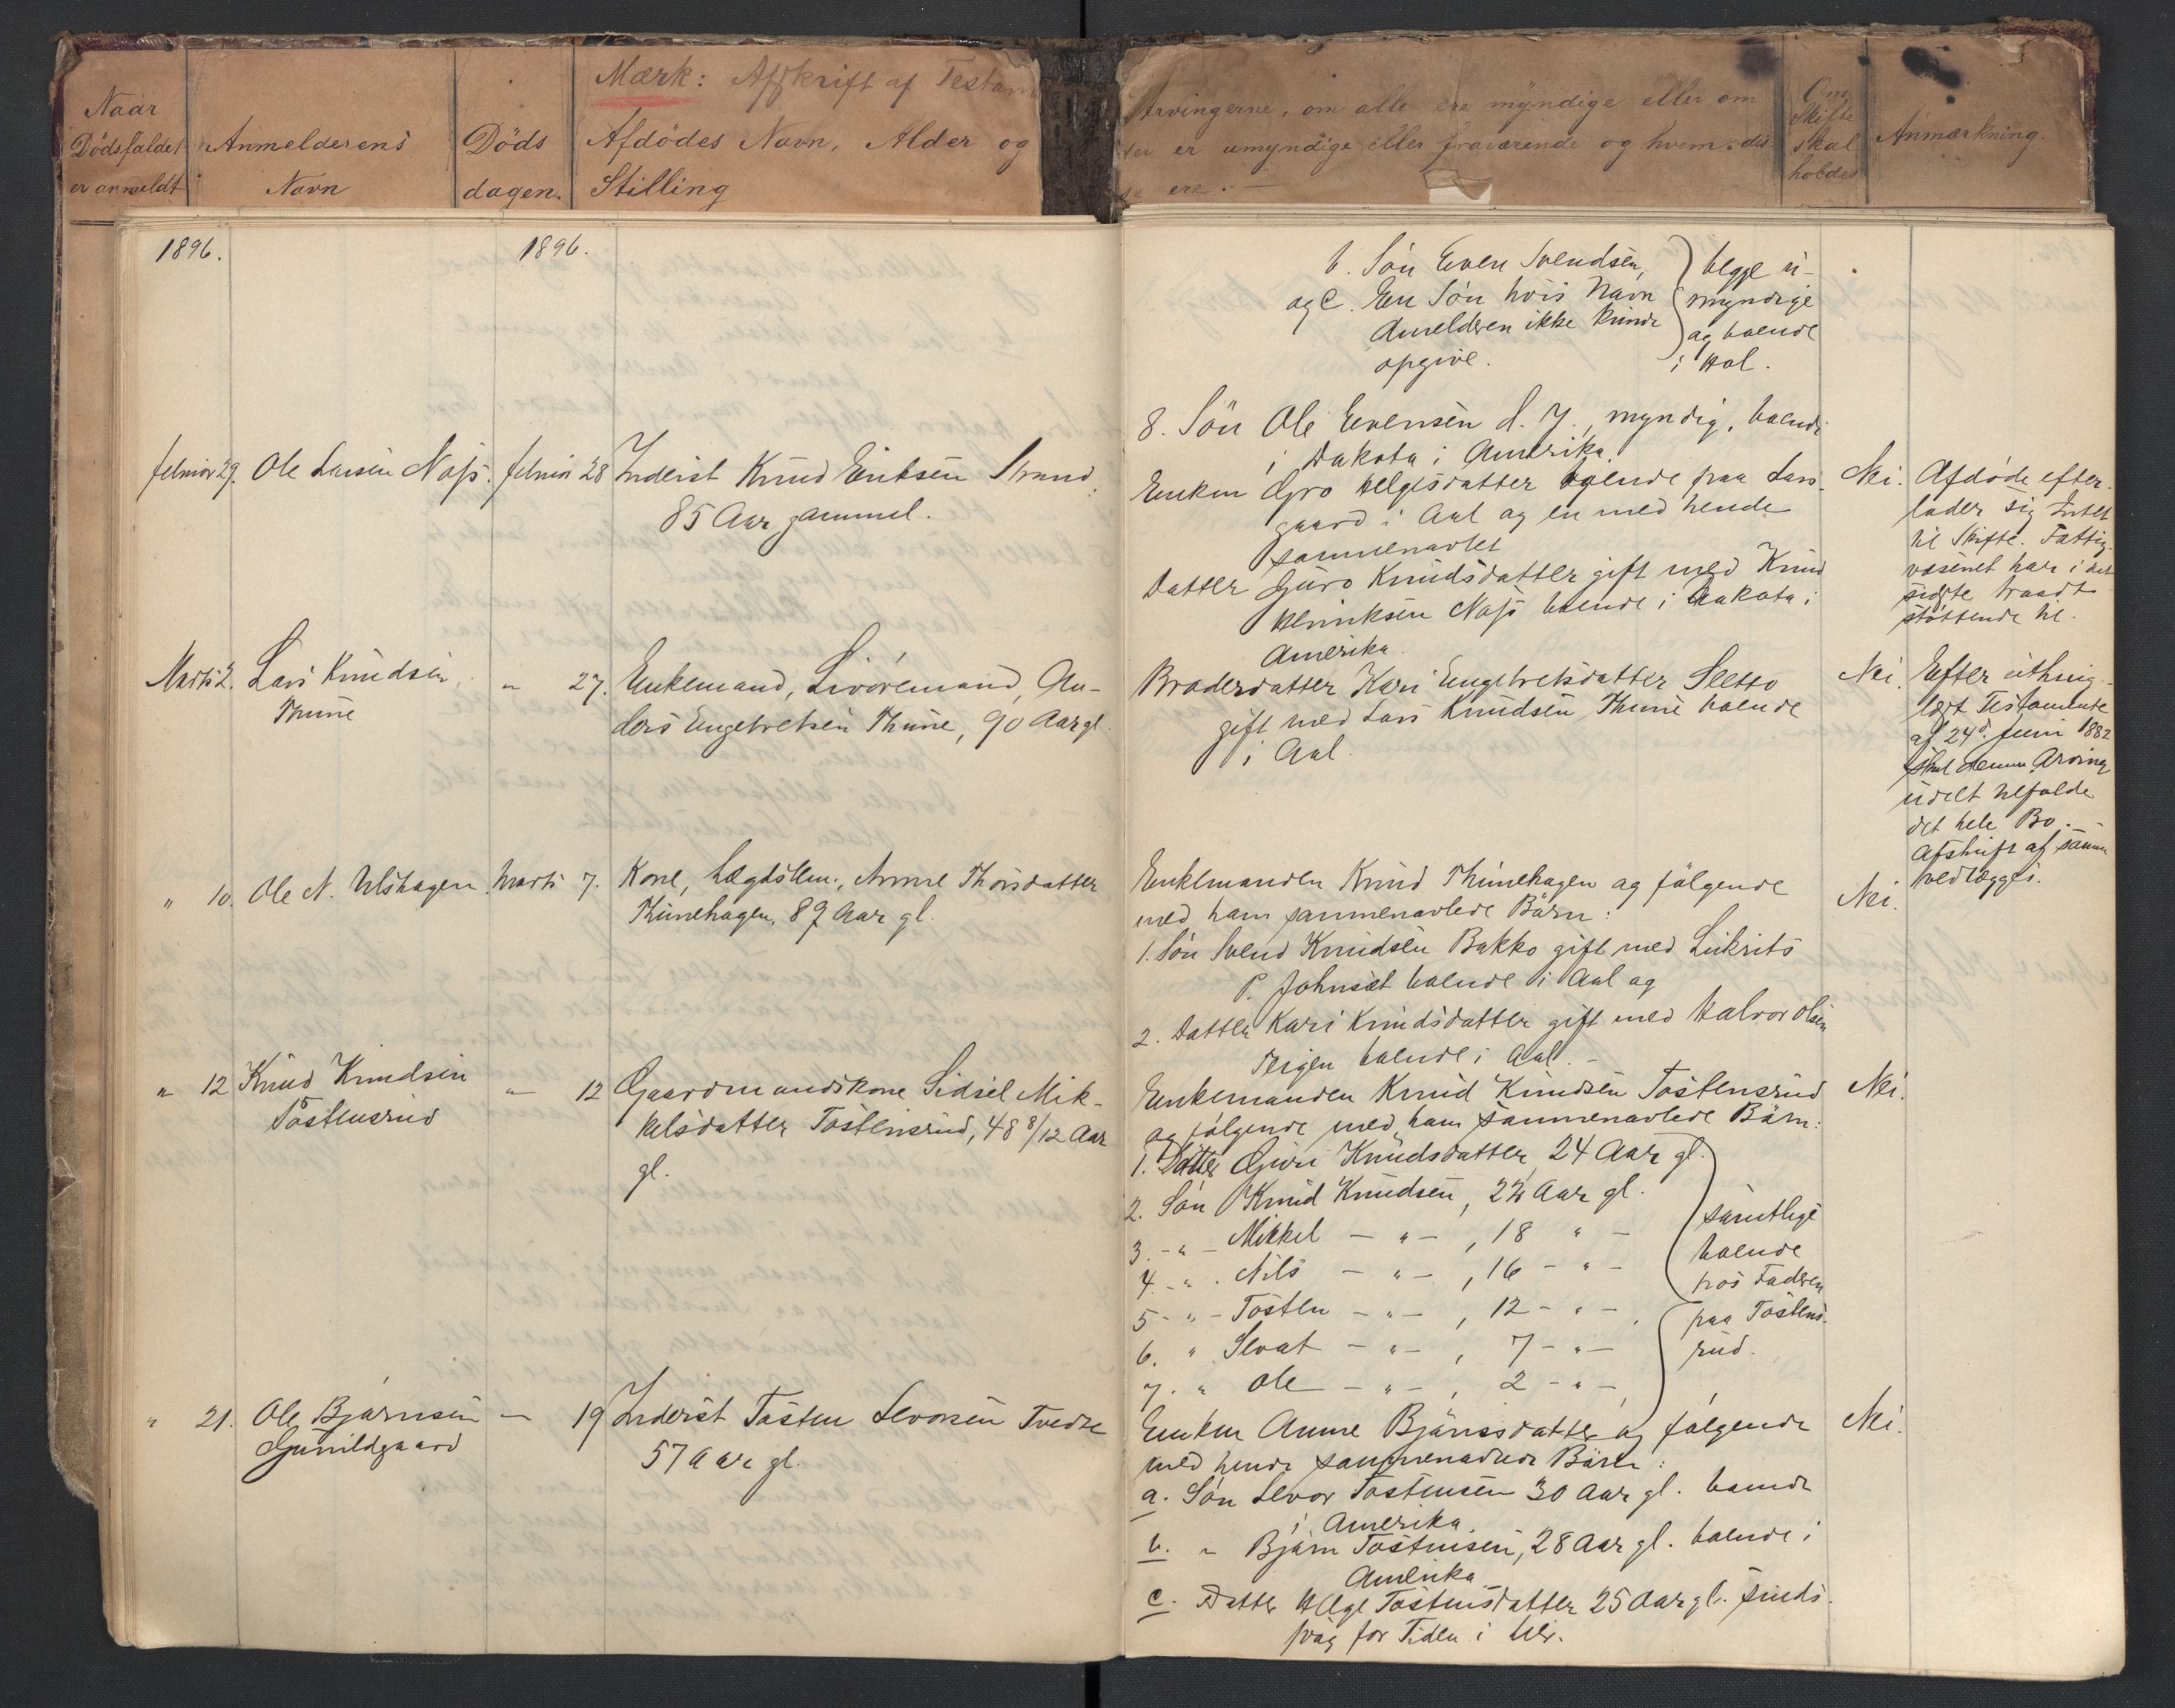 Naar
Dödsfaldet
er anmeldt
Anmelderens
Navn
Döds
dagen.
Mærk: Afskrift af Testam
Afdödes Navn, Alder og
Stilling
Arvingerne, om alle ere myndige eller om
er umyndige eller fraværende og hvem dis-
se ere. —
Om
Skifte
skal
holdes
Anmærkning.
1896.
1896.
b. Sön Even Svendsen,
og C. En Sön hvis Navn
Anmelderen ikke kunde
opgive.
begge u-
myndige
og boende
i Hol.
8. Sön Ole Evensen d. Y., myndig, boende
i Dakota i Amerika.
Februar 29.
Ole Larsen Næs.
Februar 28
Inderst Knud Eriksen Strand,
85 Aar gammel.
Enken Gro Helgesdatter boende paa Lars-
gaard i Aal og en med hende
sammenavlet
Datter Guro Knudsdatter gift med Knud
Henriksen Næs boende i Dakota i
Amerika.
Nei.
Afdöde efter-
lader sig Intet
til Skifte. Fattig-
væsenet har i det
sidste traadt
stöttende til.
Marts 2.
Lars Knudsen
Thune
" 27.
Enkemand, Livöremand, An-
ders Engebretsen Thune, 90 Aar gl.
Broderdatter Kari Engebretsdatter Sletto
gift med Lars Knudsen Thune boende
i Aal.
Nei.
Efter uthing-
læst Testamente
af 24d. Juni 1882
skal denne Arving
udelt tilfalde
det hele Bo. -
Afskrift af samme
vedlægges.
" 10.
Ole N. Ulshagen
Marts 7.
Kone, Lægdslem., Anne Thorsdatter
Thunehagen, 87 Aar gl.
Enkemanden Knud Thunehagen og fölgende
med ham sammenavlede Börn:
1. Sön Svend Knudsen Bakko gift med Lukrits
P. Johnsæt boende i Aal og
2. Datter Kari Knudsdatter gift med Halvor Olsen
Teigen boende i Aal. -
Nei.
" 12
Knud Knudsen
Tostensrud
" 12
Gaardmandskone Sidsel Mik-
kelsdatter Tostensrud, 48 8/12 Aar
gl.
Enkemanden Knud Knudsen Tostensrud
og fölgende med ham sammenavlede Börn:
1. Datter Guri Knudsdatter, 24 Aar gl.
2. Sön Knud Knudsen, 22 Aar gl.
3. - " - Mikkel — " — , 18 " —
4. - " . Nils — " — , 16 - " -
5 - " - Tosten - " - , 12 - " - .
6. " Sevat - " - , 7 - " -
7. " Ole - " - , 2 - " -
samtlige
boende
hos Faderen
paa Tostens-
rud.
Nei.
" 21.
Ole Bjørnsen
Gunildgaard
— 19
Inderst Tosten Levorsen Tvedte
57 Aar gl.
Enken Anne Bjørnsdatter og fölgende
med hende sammenavlede Börn:
a. Sön Levor Tostensen 30 Aar gl. boende
i Amerika.
b. " Bjørn Tostensen, 28 Aar gl. boende i
Amerika
c. Datter Hæge Tostensdatter 25 Aar gl. sinds-
svag for Tiden i
Nei.